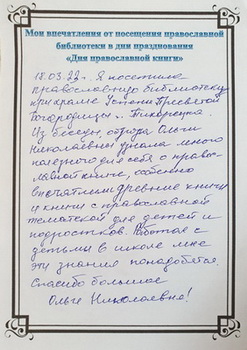 Мои впечатления от посещения православной
библиотеки в дни празднования
«Дня православной книги»
18.03.22 г. Я посетила
православную библиотеку
при храме Успения Пресвятой
Богородицы г.
Из беседы, Ольги
Николаевны узнала много
для себя о право-
славной книге, особенно
впечатлили древние книги
и книги с православной
тематикой для детей и
подростков. Работая с
детьми в школе мне
эти знания понадобятся.
Спасибо большое
Ольге Николаевне!